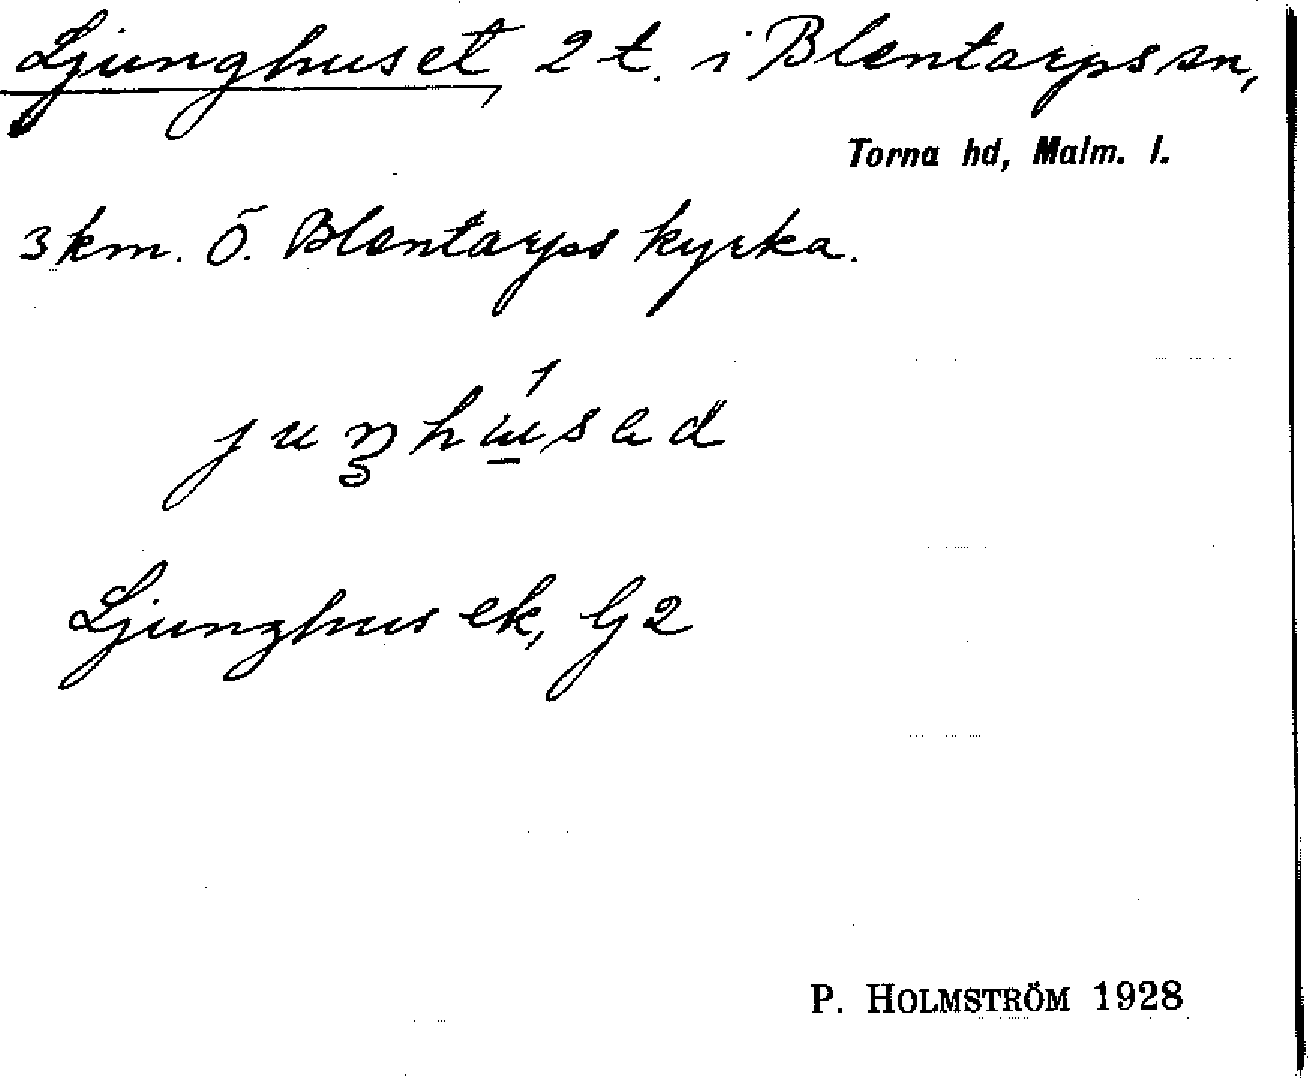 Ljunghuset, 2 t. i Blentarps sn,
Torna hd, Malm. l.
3 km. Ö. Blentarps kyrka.
Ljunghus ek, G2
P. HOLMSTRÖM 1928